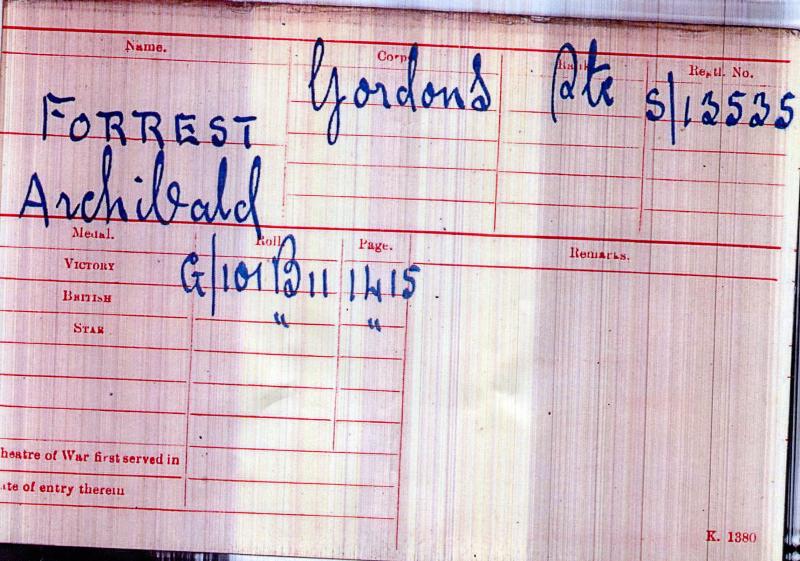 Name. Corps Rank Regtl. No.
FORREST Gordons Pte S/13535
Archibald
Medal. Roll Page. Remarks.
VICTORY G/101B11 1415
BRITISH " "
STAR
heatre of War first served in
ate of entry therein
K. 1380